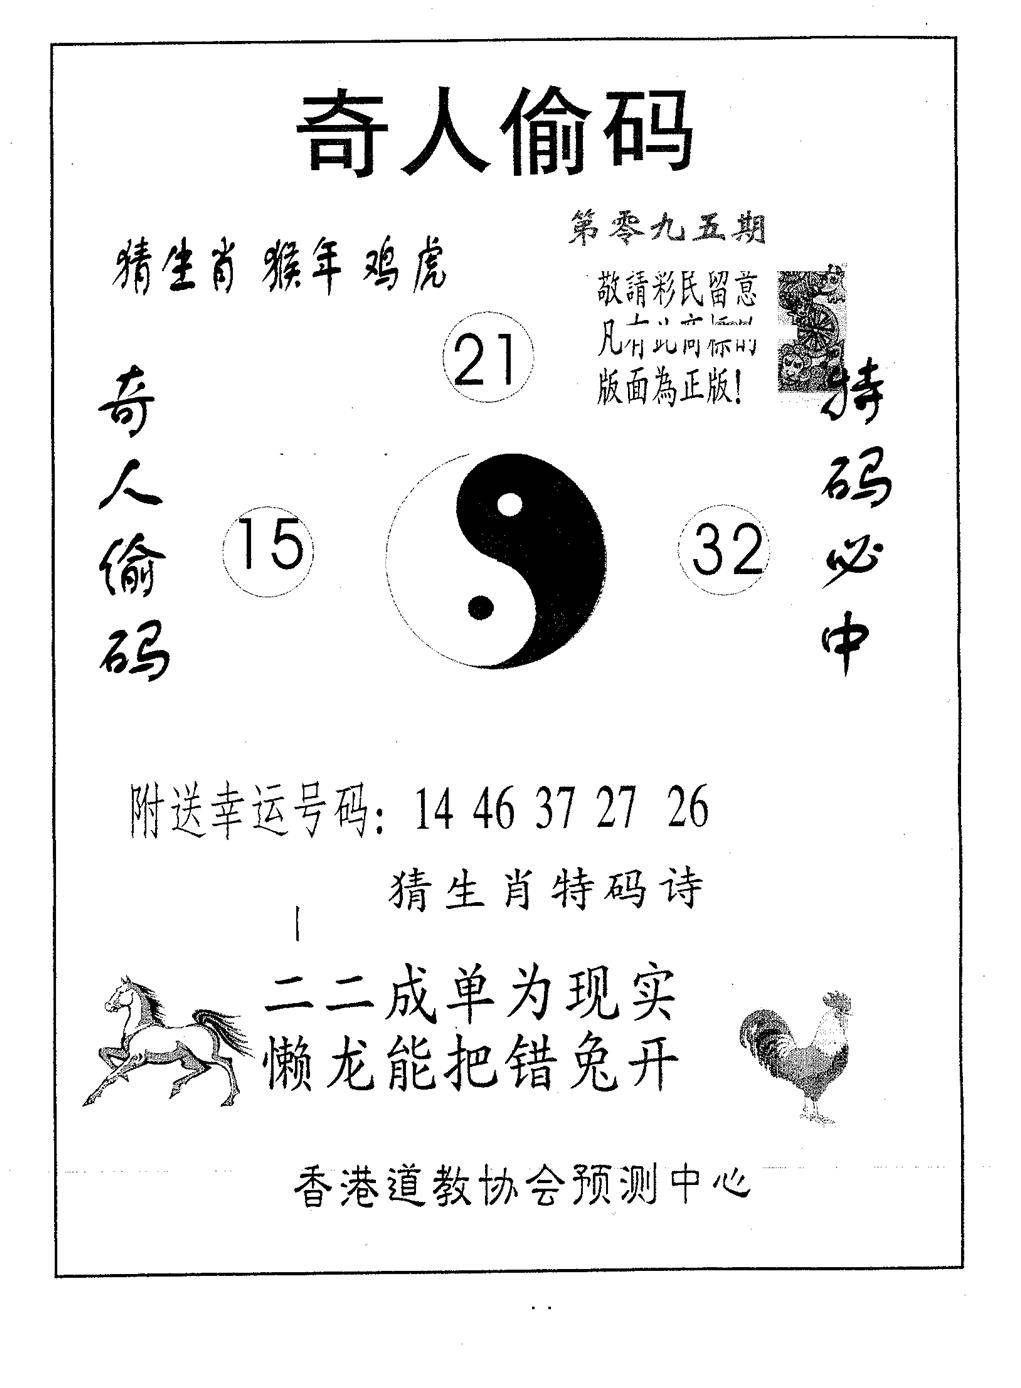 奇人偷码
第零九五期
猜生肖 猴年鸡虎
敬請彩民留意
凡有此商標的
版面為正版!
21
奇人偷码
特码必中
15
32
附送幸运号码: 14 46 37 27 26
猜生肖特码诗
二二成单为现实
懒龙能把错兔开
香港道教协会预测中心